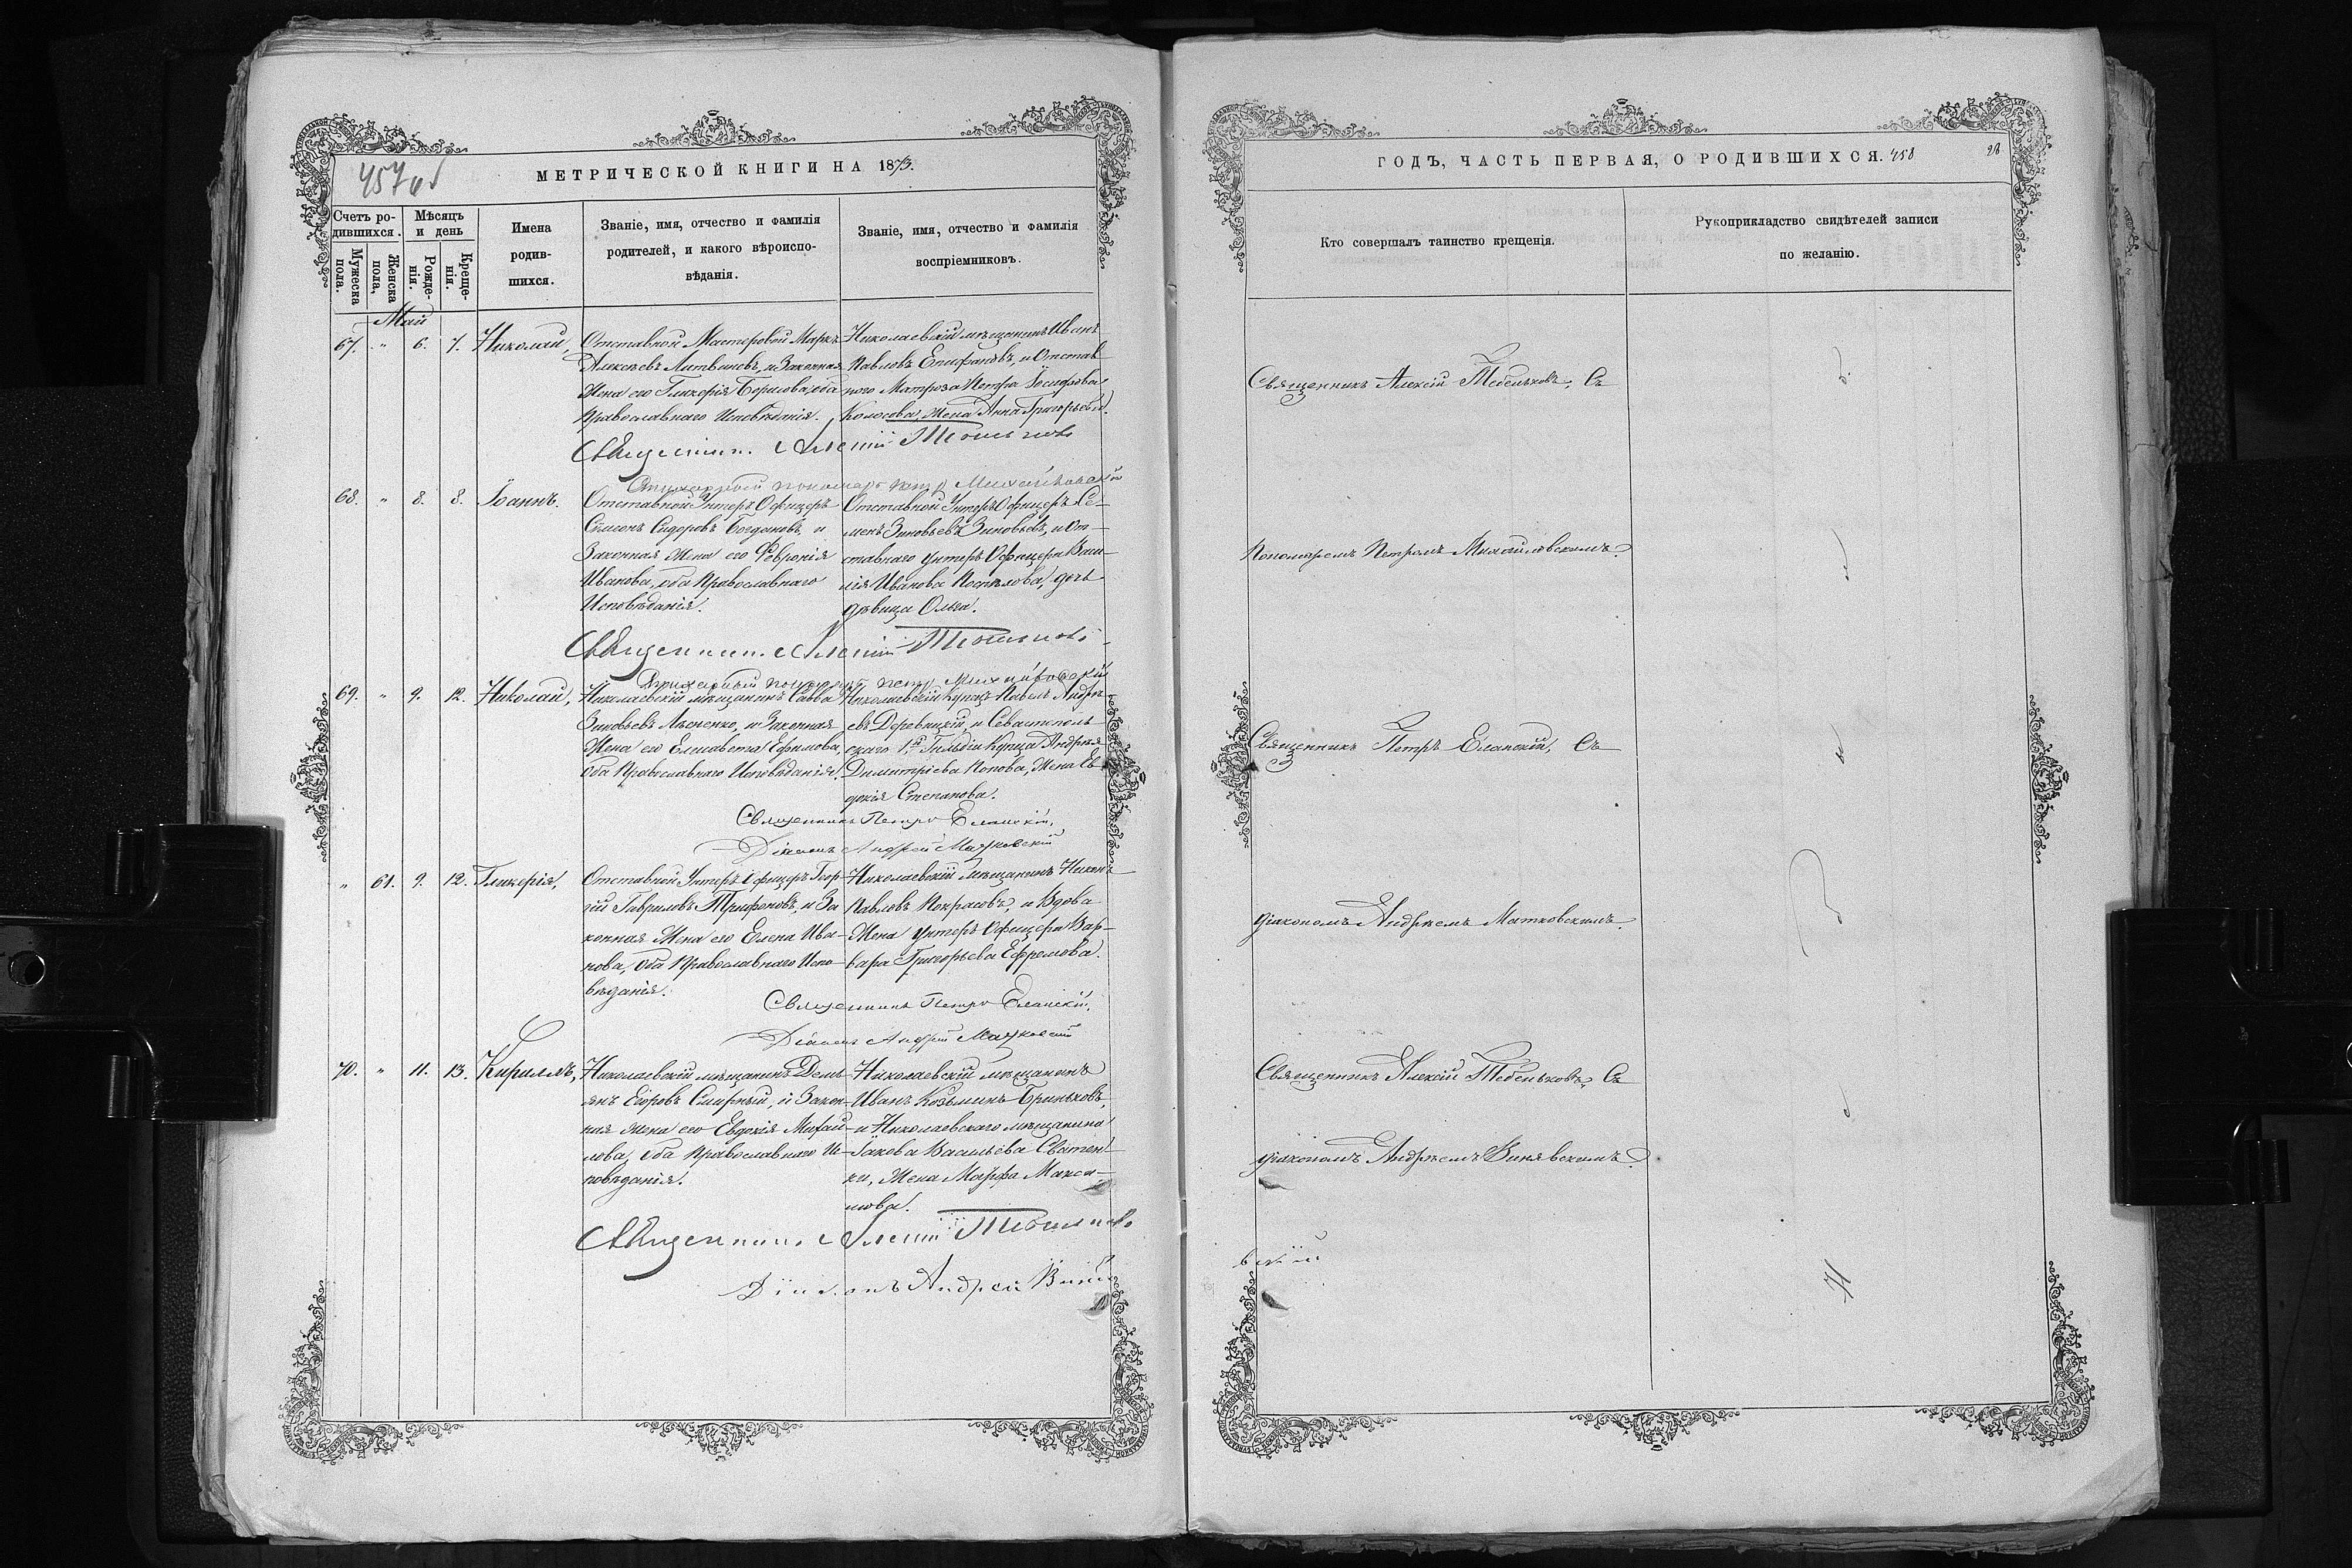 457 об
МЕТРИЧЕСКОЙ КНИГИ НА 1873.
Счетъ ро-
дившихся.
Мѣсяцъ
и день
Мужеска
пола.
Женска
пола,
Рожде-
нія.
Креще-
нія.
Имена
родив-
шихся.
Званіе, имя, отчество и фамилія
родителей, и какого вѣроиспо-
вѣданія.
Званіе, имя, отчество и фамилія
воспріемниковъ.
Май
67. " 6. 7. Николай,
Отставной Мастеровой Маркъ
Алексѣевъ Литвиновъ, и Законная
Жена его Гликерія Борисова, оба
Православнаго Исповѣданія.
Николаевскій мѣщанинъ Иванъ
Павловъ Епифановъ, и Отстав
ного Матроза Петра Іосифова
Колосова, Жена Анна Григорьева.
Священникъ Алексій Тебеньковъ
Стихарный пономарь Петръ Михайловскій
68. " 8. 8. Іоаннъ.
Отставной Унтеръ Офицеръ
Симеонъ Сидоровъ Богдановъ, и
Законная Жена его Февронія
Иванова, оба Православнаго
Исповѣданія.
Отставной Унтеръ Офицеръ Се-
менъ Зиновьевъ Зиновьевъ, и От-
ставнаго Унтеръ Офицера Васи-
лія Иванова Поспѣлова, дочь
дѣвица Ольга.
Священникъ Алексій Тебеньковъ
Стихарный пономарь Петръ Михайловскій
69. " 9. 12. Николай,
Николаевскій мѣщанинъ Савва
Зиновьевъ Лысенко, и Законная
Жена его Елисавета Ефимова,
Оба Православнаго Исповѣданія.
Николаевскій Купецъ Павелъ Андре-
евъ Деровицкій, и Севастополь-
скаго 1й Гильдіи Купца Андрея
Димитріева Попова, Жена Ев
докія Степанова.
Священникъ Петръ Еланскій,
Діаконъ Андрей Матковскій
" 61. 9. 12. Гликерія,
Отставной Унтеръ Офицеръ Геор-
гій Гавриловъ Трифоновъ, и За
конная Жена его Елена Ива-
нова, Оба Православнаго Испо-
вѣданія.
Николаевскій мѣщанинъ Никонъ
Павловъ Некрасовъ, и Вдова
Жена Унтеръ Офицера Вар-
вара Григорьева Ефремова.
Священникъ Петръ Еланскій,
Діаконъ Андрей Матковскій
70. " 11. 13. Кириллъ,
Николаевскій мѣщанинъ Демь-
янъ Егоровъ Смирный, и Закон-
ная Жена его Евдокія Михай-
лова, Оба Православнаго И-
повѣданія.
Николаевскій мѣщанинъ
Иванъ Козьминъ Бриньковъ,
и Николаевскаго мѣщанина
Іакова Васильева Сватен
ки, Жена Марфа Макси-
мова.
Священникъ Алексій Тебеньковъ
Діаконъ Андрей Виня
ГОДЪ, ЧАСТЬ ПЕРВАЯ, О РОДИВШИХСЯ. 458
28
Кто совершалъ таинство крещенія.
Рукоприкладство свидѣтелей записи
по желанію.
Священникъ Алексій Тебеньковъ, Съ
Пономаремъ Петромъ Михайловскимъ.
Священникъ Петръ Еланскій, Съ
Діакономъ Андреемъ Матковскимъ.
Священникъ Алексій Тебеньковъ, Съ
Діакономъ Андреемъ Винявскимъ.
вскій